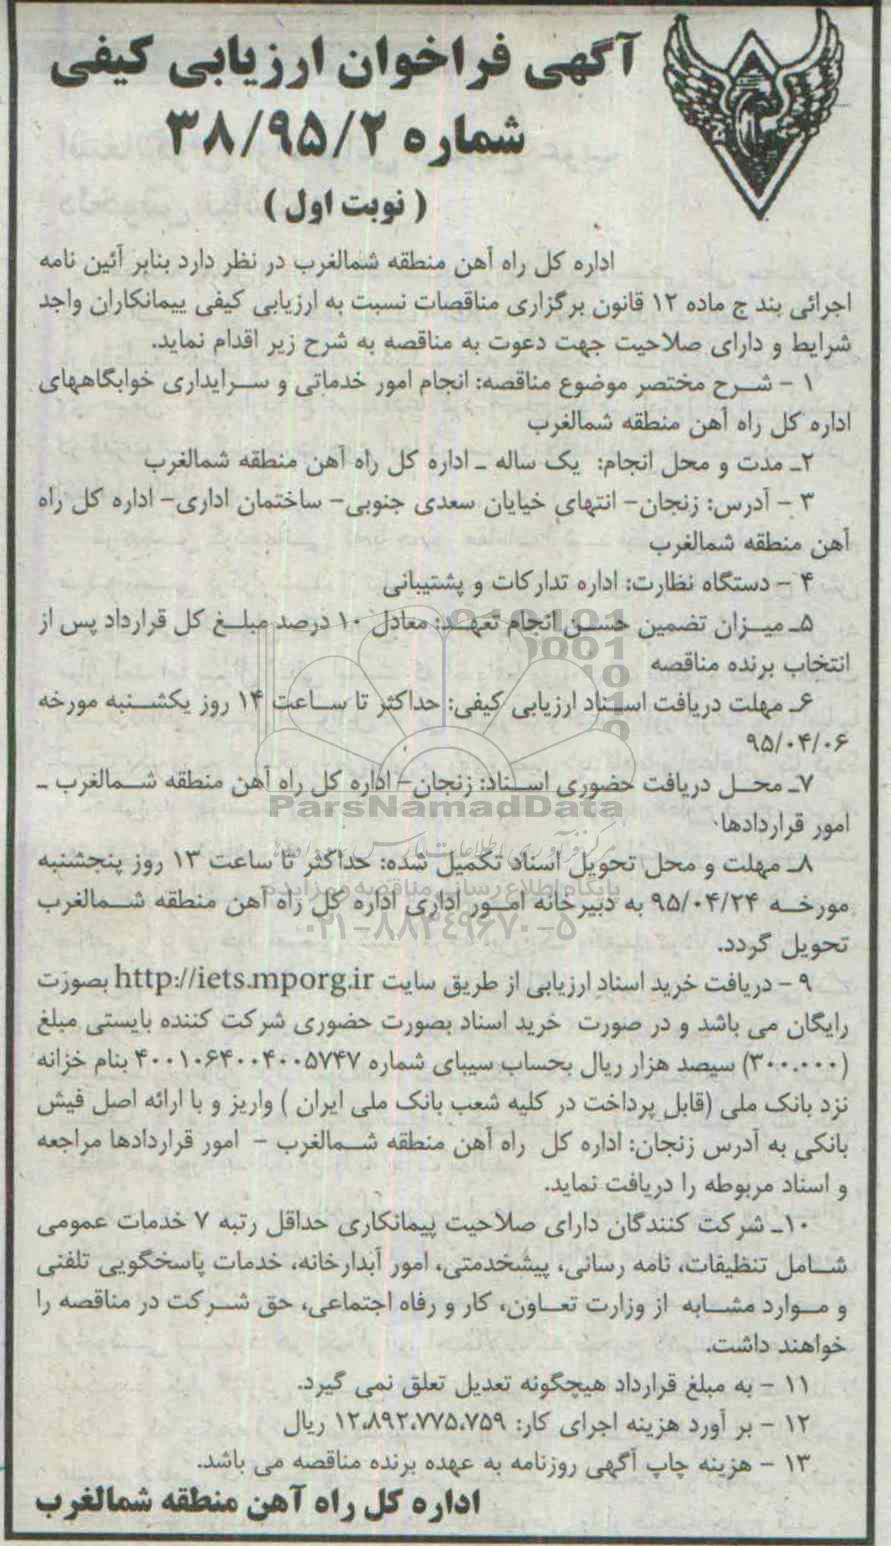 آگهی فراخوان ارزیابی کیفی
شماره ۳۸/۹۵/۲
( نوبت اول )
اداره کل راه آهن منطقه شمالغرب در نظر دارد بنابر آئین نامه
اجرائی بند ج ماده ۱۲ قانون برگزاری مناقصات نسبت به ارزیابی کیفی پیمانکاران واجد
شرایط و دارای صلاحیت جهت دعوت به مناقصه به شرح زیر اقدام نماید.
۱ - شرح مختصر موضوع مناقصه: انجام امور خدماتی و سرایداری خوابگاههای
اداره کل راه آهن منطقه شمالغرب
۲ـ مدت و محل انجام: یک ساله ـ اداره کل راه آهن منطقه شمالغرب
۳ - آدرس: زنجان- انتهای خیابان سعدی جنوبی- ساختمان اداری- اداره کل راه
آهن منطقه شمالغرب
۴ - دستگاه نظارت: اداره تدارکات و پشتیبانی
۵ـ میزان تضمین حسن انجام تعهد: معادل ۱۰ درصد مبلغ کل قرارداد پس از
انتخاب برنده مناقصه
۶ـ مهلت دریافت اسناد ارزیابی کیفی: حداکثر تا ساعت ۱۴ روز یکشنبه مورخه
۹۵/۰۴/۰۶
۷ـ محل دریافت حضوری اسناد: زنجان- اداره کل راه آهن منطقه شمالغرب ـ
ParsNamadData
امور قراردادها
۸ـ مهلت و محل تحویل اسناد تکمیل شده: حداکثر تا ساعت ۱۳ روز پنجشنبه
پایگاه اطلاع رسانی مناقصه و مزایده
مورخه ۹۵/۰۴/۲۴ به دبیرخانه امور اداری اداره کل راه آهن منطقه شمالغرب
۰۲۱-۸۸۳۴۹۶۷۰-۵
تحویل گردد.
۹ - دریافت خرید اسناد ارزیابی از طریق سایت http://iets.mporg.ir بصورت
رایگان می باشد و در صورت خرید اسناد بصورت حضوری شرکت کننده بایستی مبلغ
(۳۰۰.۰۰۰) سیصد هزار ریال بحساب سیبای شماره ۴۰۰۱۰۶۴۰۰۴۰۰۵۷۴۷ بنام خزانه
نزد بانک ملی (قابل پرداخت در کلیه شعب بانک ملی ایران ) واریز و با ارائه اصل فیش
بانکی به آدرس زنجان: اداره کل راه آهن منطقه شمالغرب - امور قراردادها مراجعه
و اسناد مربوطه را دریافت نماید.
۱۰ـ شرکت کنندگان دارای صلاحیت پیمانکاری حداقل رتبه ۷ خدمات عمومی
شامل تنظیفات، نامه رسانی، پیشخدمتی، امور آبدارخانه، خدمات پاسخگویی تلفنی
و موارد مشابه از وزارت تعاون، کار و رفاه اجتماعی، حق شرکت در مناقصه را
خواهند داشت.
۱۱ - به مبلغ قرارداد هیچگونه تعدیل تعلق نمی گیرد.
۱۲ - بر آورد هزینه اجرای کار: ۱۲،۸۹۲،۷۷۵،۷۵۹ ریال
۱۳ - هزینه چاپ آگهی روزنامه به عهده برنده مناقصه می باشد.
اداره کل راه آهن منطقه شمالغرب